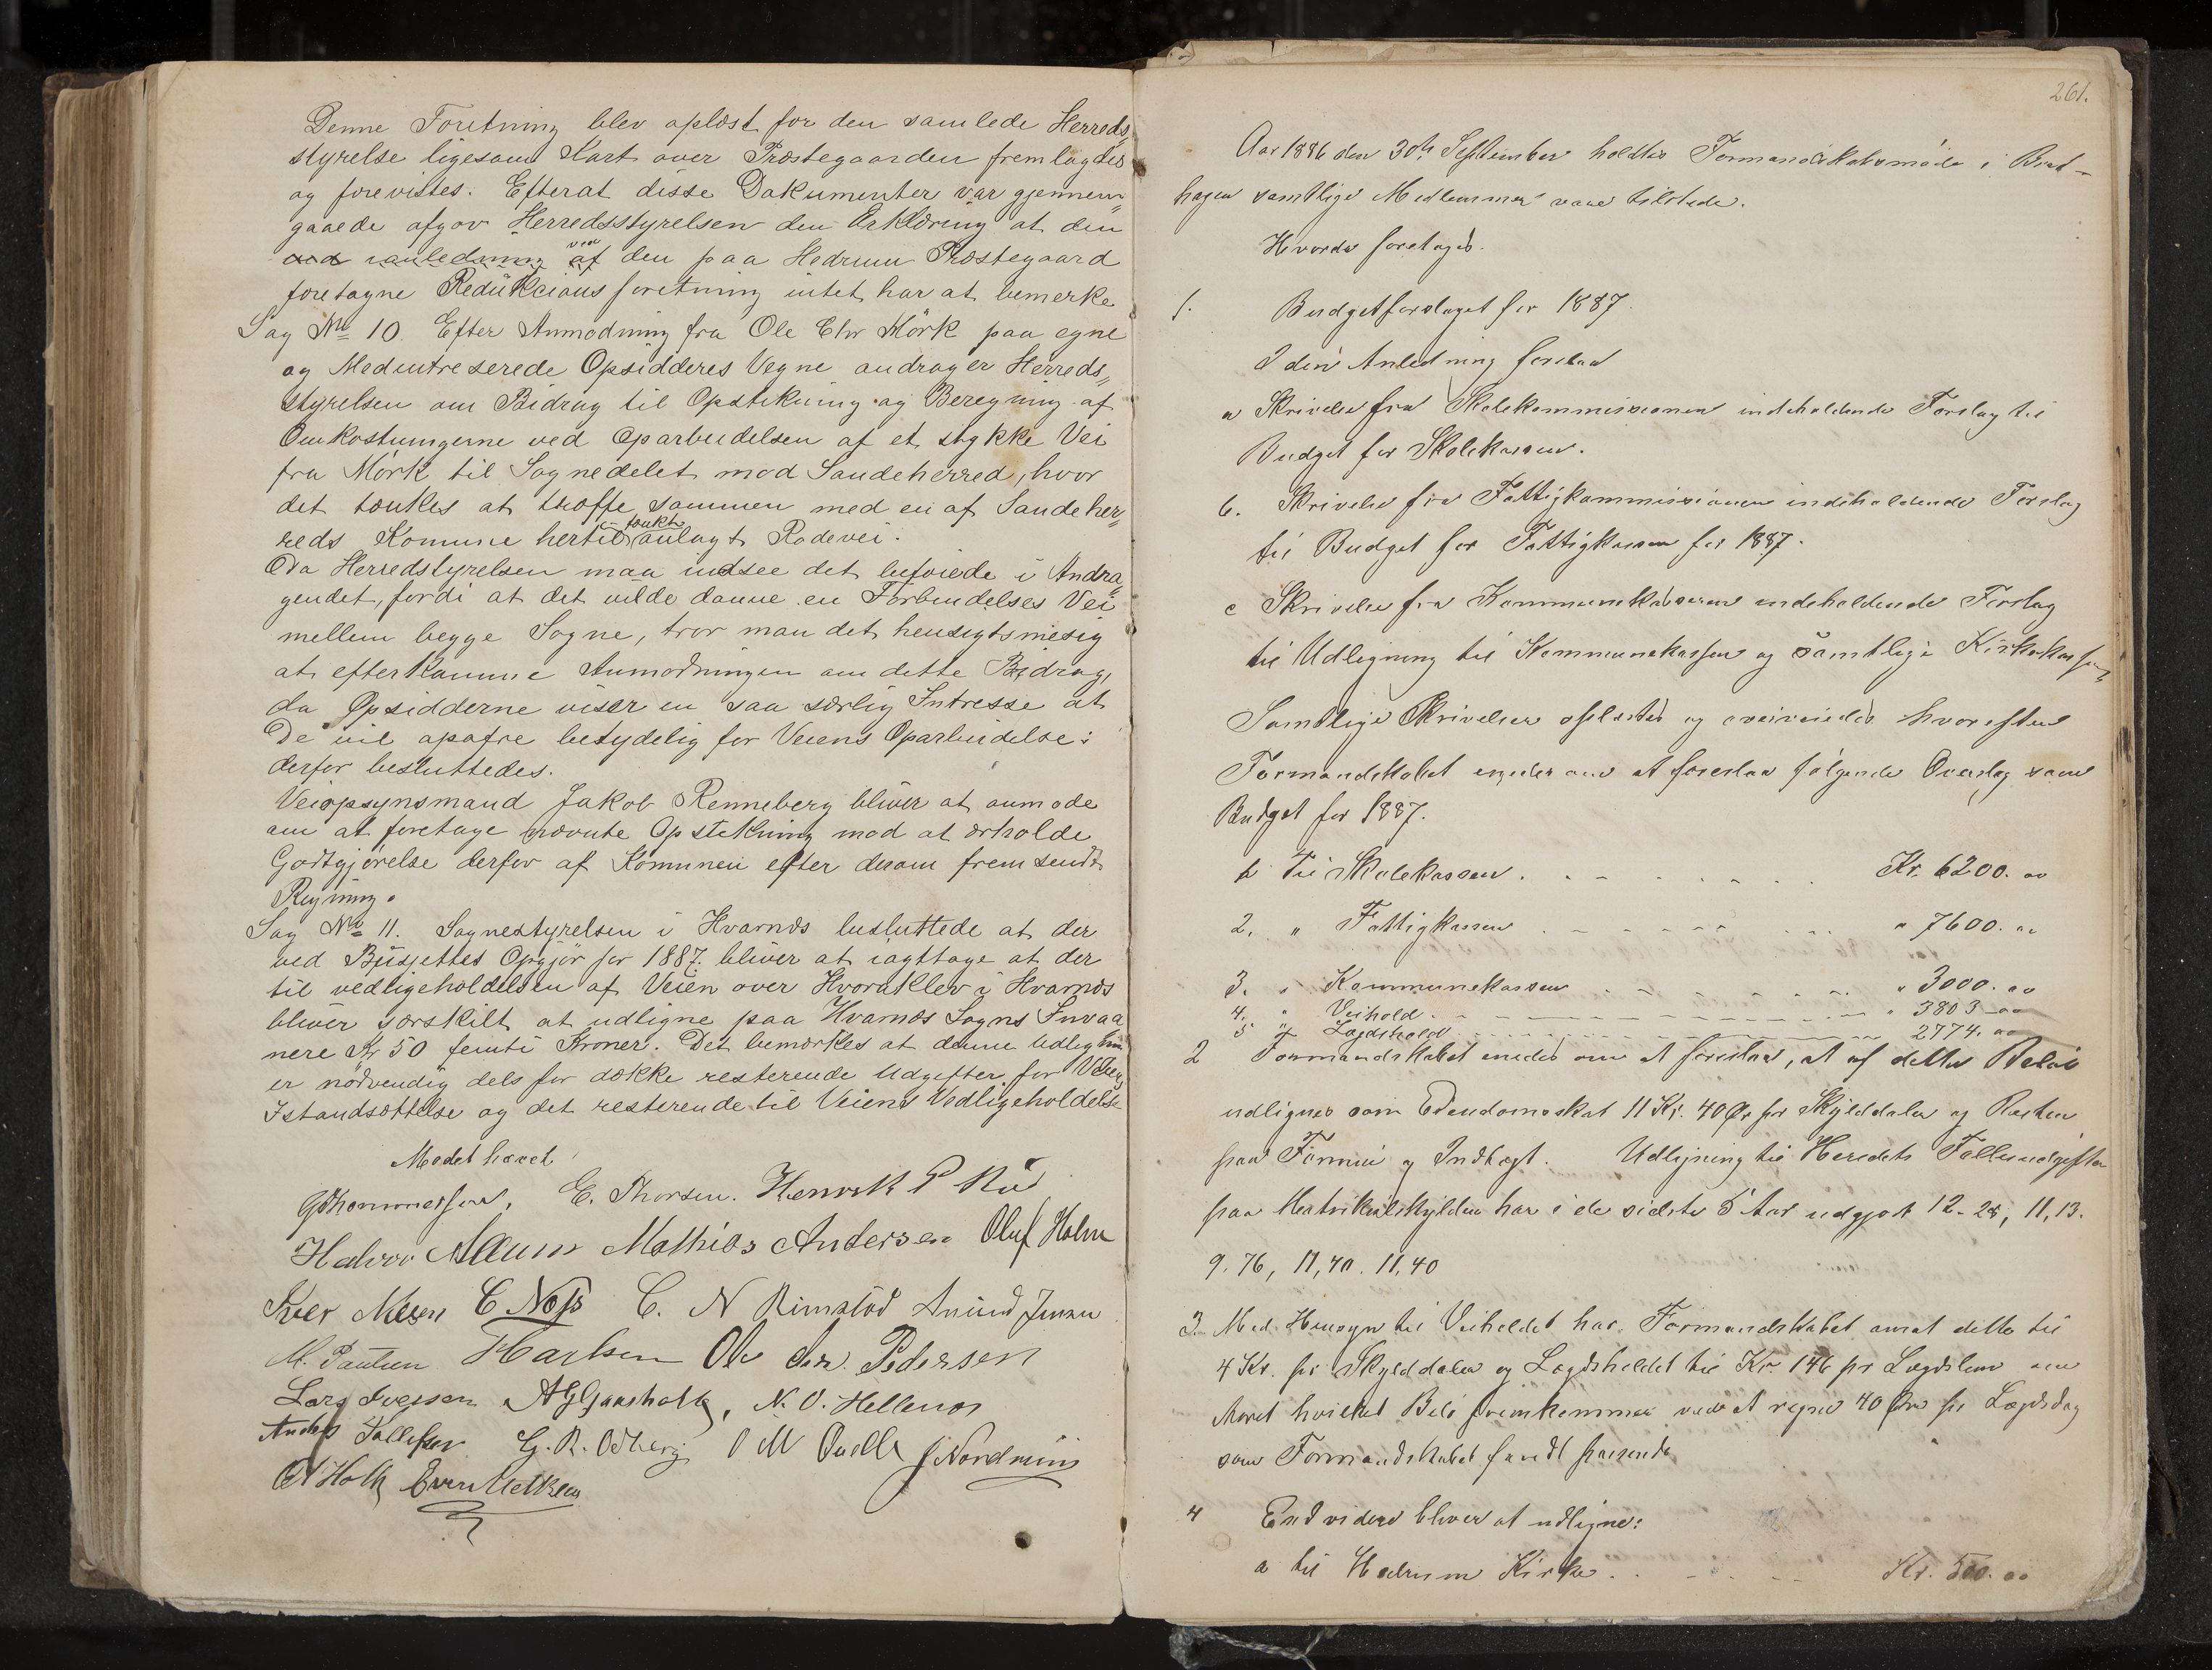 Denne Foretning blev oplæst for den samlede Herreds„
styrelse ligesom Kart over Præstegaarden fremlagdes
og forevistes. Efterat disse Dokumenter var gjennem„
gaaede afgav Herredsstyrelsen den Erklæring at den
ved
af den paa Hedrum Præstegaard
foretagne Redükcions foretning intet har at bemerke
Sag No 10. Efter Anmodning fra Ole Chr Mörk paa egne
og Medintreserede Opsidderes Vegne andrager Herreds„
styrelsen om Bidrag til Opstikning og Beregning af
Omkostningerne ved Oparbeidelsen af et stykke Vei
fra Mörk til Sognedelet mod Sandeherred, hvor
det tænkes at træffe sammen med en af Sandeher„
tænkt
reds Komune hertil anlagt Rodevei.
Da Herredstyrelsen maa indsee det beføiede i Andra„
gendet, fordi at det vilde danne en Forbindelses Vei
mellem begge Sogne, tror man det hensigtsmesig
at efterkomme Anmodningen om dette Bidrag,
da Opsidderne viser en saa særlig Intresse at
De vil opofre betydelig for Veiens Oparbeidelse:
derfor besluttedes.
Veiopsynsmand Jakob Renneberg bliver at anmode
om at foretage nævnte Opstikning mod at ærholde
Godtgjørelse derfor af Komunen efter derom fremsendt
Regning.
Sag No 11. Sognestyrelsen i Hvarnæs besluttede at der
ved Büdjettes Opgjør for 1887. bliver at iagttage at der
til vedligeholdelsen af Veien over Hvoraklev i Hvarnæs
bliver særskilt at udligne paa Hvarnæs Sogns Invaa
nere Kr 50 femti Kroner. Det bemærkes at denne Udlegning
er nødvendig dels for dække resterende Udgifter for Veiens
Istandsættelse og det resterende til Veiens Vedligeholdelse
Mødet hævet
E. Thorsen. Henrik P
Halvor Allum Mathias Andersen Oluf Holm
Iver C Næss C. N Rimstöd Anund Jensen
M. Paulsen Ole Chr. Pedersen
Lars Iverssen N. O. Hellenæs
Anders G. R. Odberg O M J Nordmün
Holt Even
261.
Aar 1886 den 30te September holdtes Formandskabsmøde i Brat-
hagen samtlige Medlemmer vare tilstede.
Hvorda foretoges.
1. Budgetforslaget for 1887.
I den Anledning forelaa
a Skrivelse fra Skolekommissionen indeholdende Forslag til
Budget for Skolekassen.
b. Skrivelse fra Fattigkommissionen indeholdende Forslag
til Budget for Fattigkassen for 1887.
c Skrivelse fra Kommunekasseren indeholdende Forslag
til Udligning til Kommunekassen og samtlige Kirkekasser
Samtlige Skrivelser oplæstes og hvorefter
Formandskabet enedes om at foreslaa følgende Overslag som
Budget for 1887.
1. Til Skolekassen . . . . . . . Kr. 6200. 00
2. " Fattigkassen . . . . . . . " 7600. 00
3. " Kommunekassen . . . . . . . " 3000. 00
4. " Veihold . . . . . . . " 3803 - 00
5 " Lægdshold . . . . . . . 2774. 00
2 Formandskabet enedes om at foreslaa, at af dette Beløb
udlignes som Eiendomsskat 11 Kr. 40 Øre pr Skylddaler og Resten
paa Formue og Indtægt. Udligning til Heredets Fællesudgifter
paa Matrikulskylden har i de sidste 5 Aar udgjort 12-28, 11,13.
9.76, 11,40. 11,40
3. Med Hensyn til Veiholdet har Formandskabet ansat dette til
4 Kr. pr Skylddaler og Lægdsholdet til Kr. 146 pr Lægdslem om
Aaret hvilket Beløb fremkommer ved at regne 40 Øre pr Lægdsdag
som Formandskabet fandt passende
4 Endvidere bliver at udligne:
a til Hedrum Kirke . . . . Kr. 500. 00